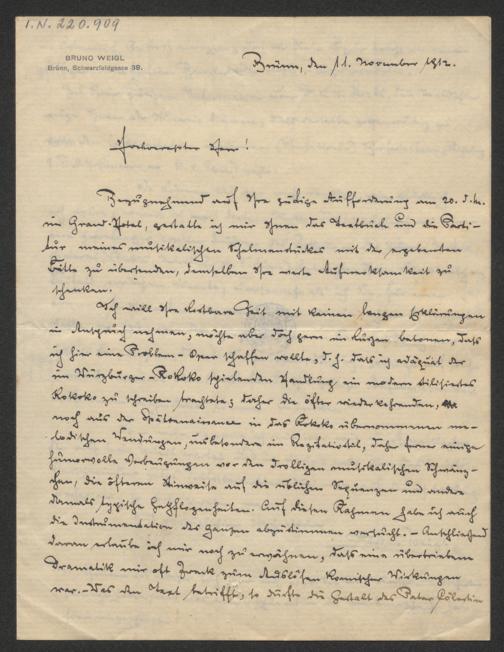 I.N. 220.909
BRUNO WEIGL
Brünn, Schwarzfeldgasse 39.
Brünn, den 11. November 1912.
Hochverehrter Herr!
Bezugnehmend auf Ihre gütige Aufforderung am 20. d. M.
im Grand-Hotel, gestatte ich mir Ihnen das Textbuch und die Parti-
tur meines musikalischen Schelmenstückes mit der ergebensten
Bitte zu übersenden, demselben Ihre werte Aufmerksamkeit zu
schenken.
Ich will Ihre kostbare Zeit mit keinen langen Erklärungen
in Anspruch nehmen, möchte aber doch gern in Kürze betonen, dass
ich hier eine Problem-Oper schaffen wollte, d. h. dass ich adäquat der
im Würzburger-Rokoko spielenden Handlung ein modern stilisiertes
Rokoko zu schreiben trachtete; daher die öfter wiederkehrenden,
noch aus der Spätrenaissance in das Rokoko übernommenen me-
lodischen Wendungen, insbesondere im Rezitativstil, daher ferner einige
humorvolle Verbeugungen vor den drolligen musikalischen
die öfteren Hinweise auf die üblichen Sequenzen und andere
damals typische Gepflogenheiten. Auf diesen Rahmen habe ich auch
die Instrumentation des Ganzen abzustimmen versucht. - Anschließend
daran erlaube ich mir noch zu erwähnen, dass eine übertriebene
Dramatik mir oft Zweck zum Auslösen komischer Wirkungen
war. - Was den Text betrifft, so dürfte die Gestalt des Pater Cölestin